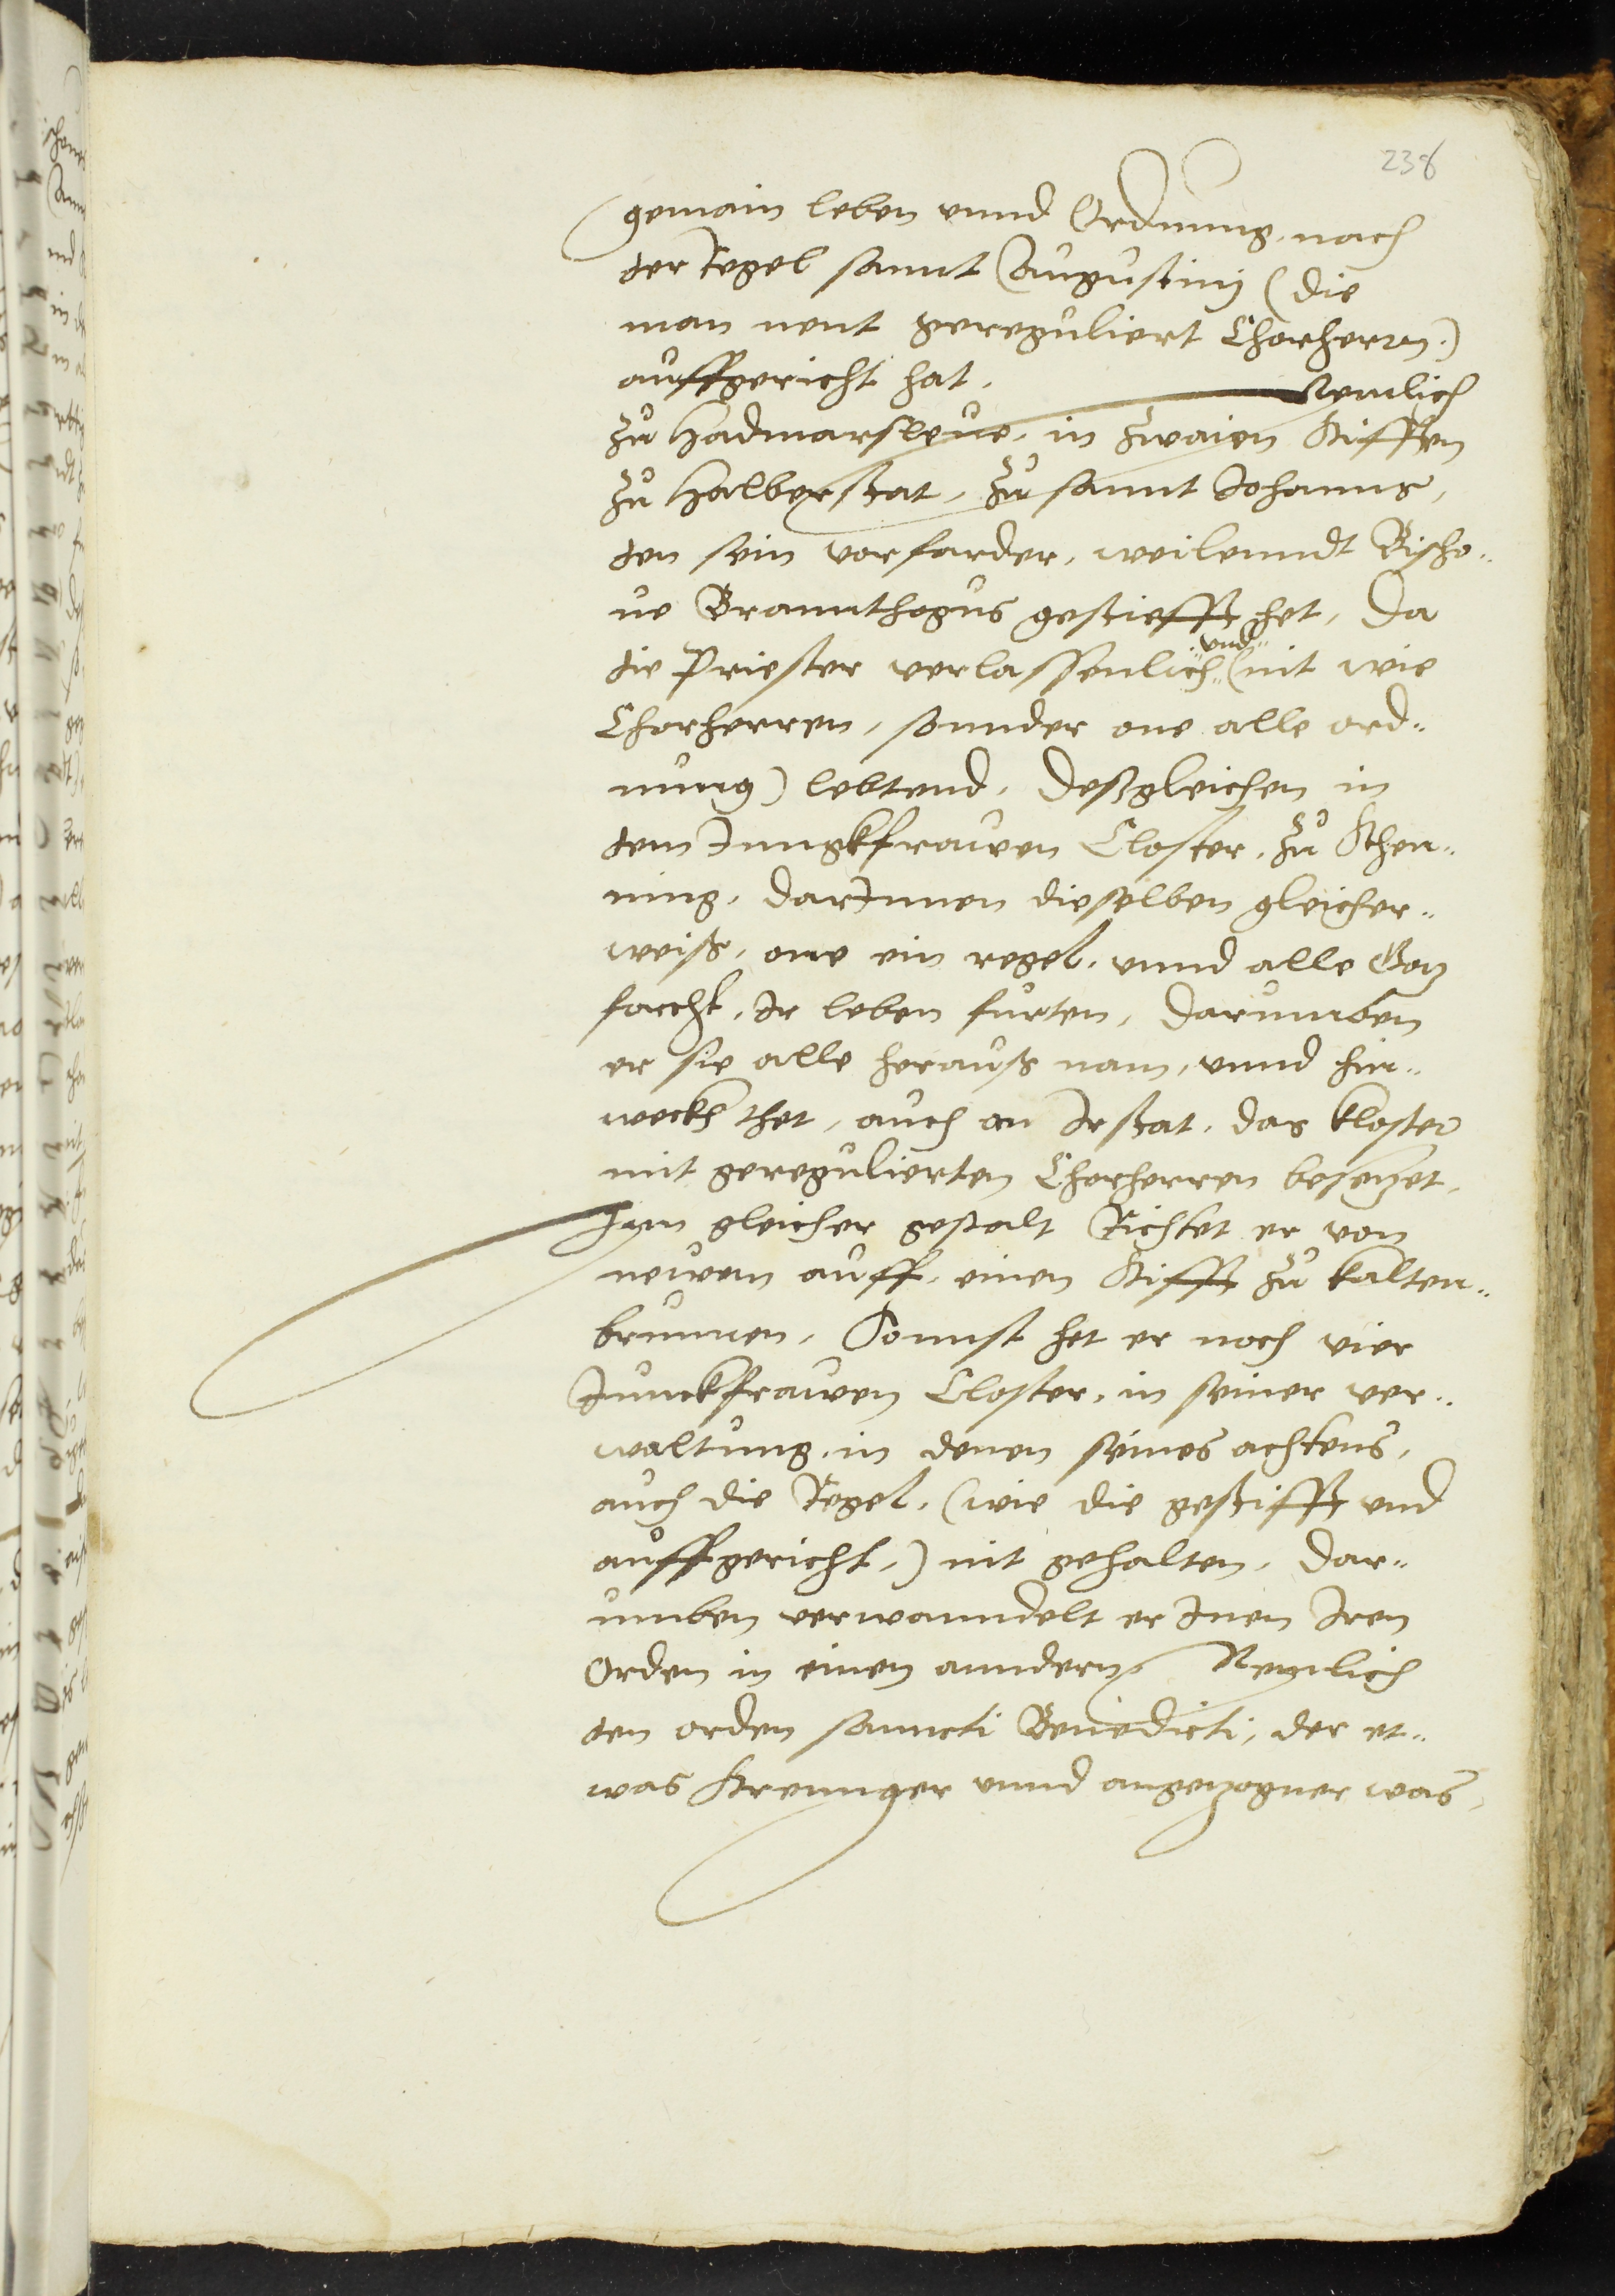 238
gemain leben vnnd Ordnung, nach
der Regel sannt Augustinj (die
man nent gereguliert Chorherrn.)
auffgericht hat. Nemlich
zu Hadmarsleue, in zwaien Stifften
zu Halberstat, zu sannt Johanns,
den sein vorfarder, weilenndt Bischo„
ue Brannthogus gestiefft het, Da
die Priester verlassenlich„ „vnd„ (nit wie
Chorherren, sonnder one alle ord„
nung) lebtend, Deßgleichen in
dem Jungkfrawen Closter, zu Schen„
ning, darJnnen dieselben gleicher„
weiß, one ein regel, vnnd alle Gotz
forcht, Jr leben furten, Darumben
er sie alle herauß nam, vnnd hin„
weckh thet, auch an Jr stat, das kloster
mit geregulierten Chorherren besetzet,
Jnn gleicher gestalt Richtet er von
newem auff, einen Stifft zu kalten„
brunnen, Sonnst het er noch vier
Junckfrawen Closter, in seiner ver„
waltung, in denen seines achtens,
auch die Regel, (wie die gestifft vnd
auffgericht,) nit gehalten, Dar„
umben verwanndelt er Jnen Jren
Orden in einen anndern, Nemlich
den orden sanncti Benedicti, der et„
was strennger vnnd angezogner was,